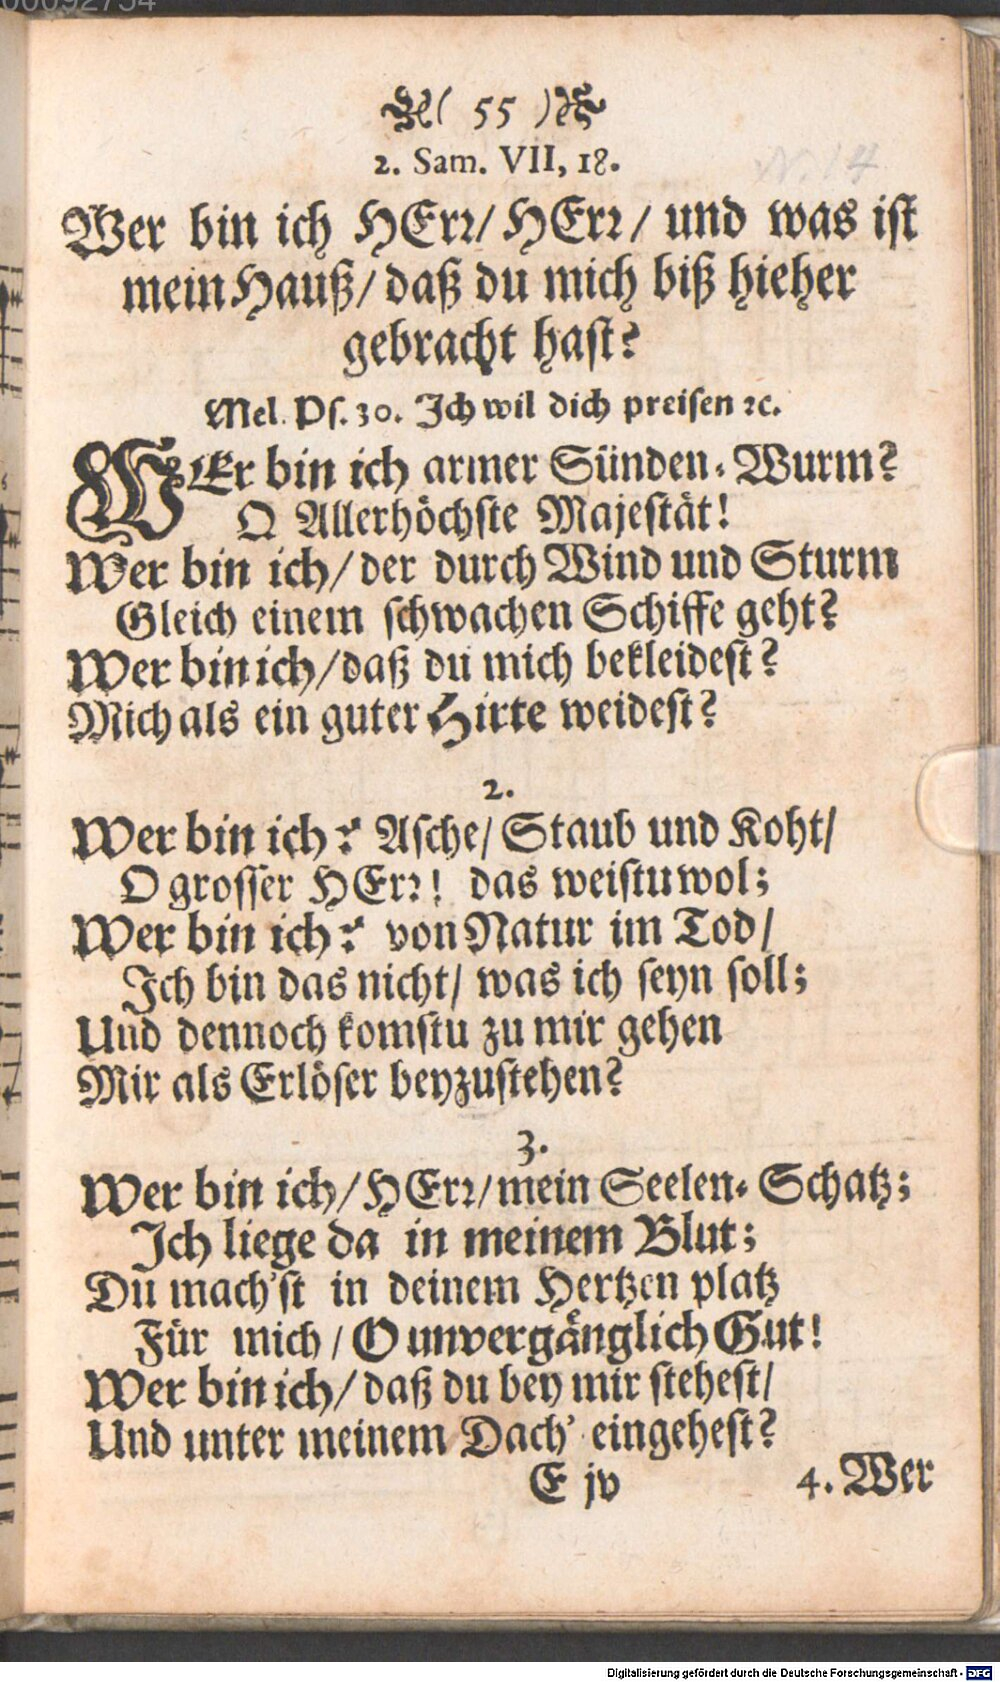 00092754
( 55 )
2. Sam. VII, 18.
Wer bin ich HErr/ HErr/ und was ist
mein Hauß/ daß du mich biß hieher
gebracht hast?
Mel. Ps. 30. Ich wil dich preisen ꝛc.
WEr bin ich armer Sünden-Wurm?
O Allerhöchste Majestät!
Wer bin ich/ der durch Wind und Sturm
Gleich einem schwachen Schiffe geht?
Wer bin ich/ daß du mich bekleidest?
Mich als ein guter Hirte weidest?
2.
Wer bin ich? Asche/ Staub und Koht/
O grosser HErr! das weistu wol;
Wer bin ich? von Natur im Tod/
Ich bin das nicht/ was ich seyn soll;
Und dennoch komstu zu mir gehen
Mir als Erlöser beyzustehen?
3.
Wer bin ich/ HErr/ mein Seelen-Schatz;
Ich liege da in meinem Blut;
Du mach'st in deinem Hertzen platz
Für mich/ O unvergänglich Gut!
Wer bin ich/ daß du bey mir stehest/
Und unter meinem Dach' eingehest?
E jv 4. Wer
Digitalisierung gefördert durch die Deutsche Forschungsgemeinschaft - DFG